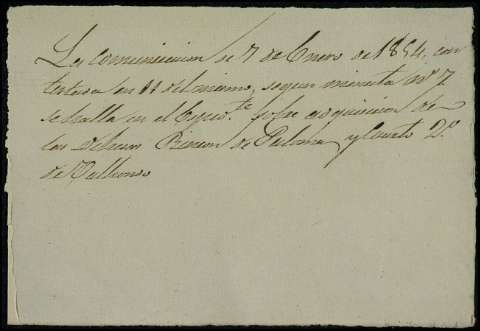 La comunicacion de 7 de Enero de 1854, con
testada en 11 del mismo, segun minuta nº 7
se halla en el Espед.te sobre adquisicion de
las Dehesas Rincon de Paloma y Cuarto D.n
de Vallhondo